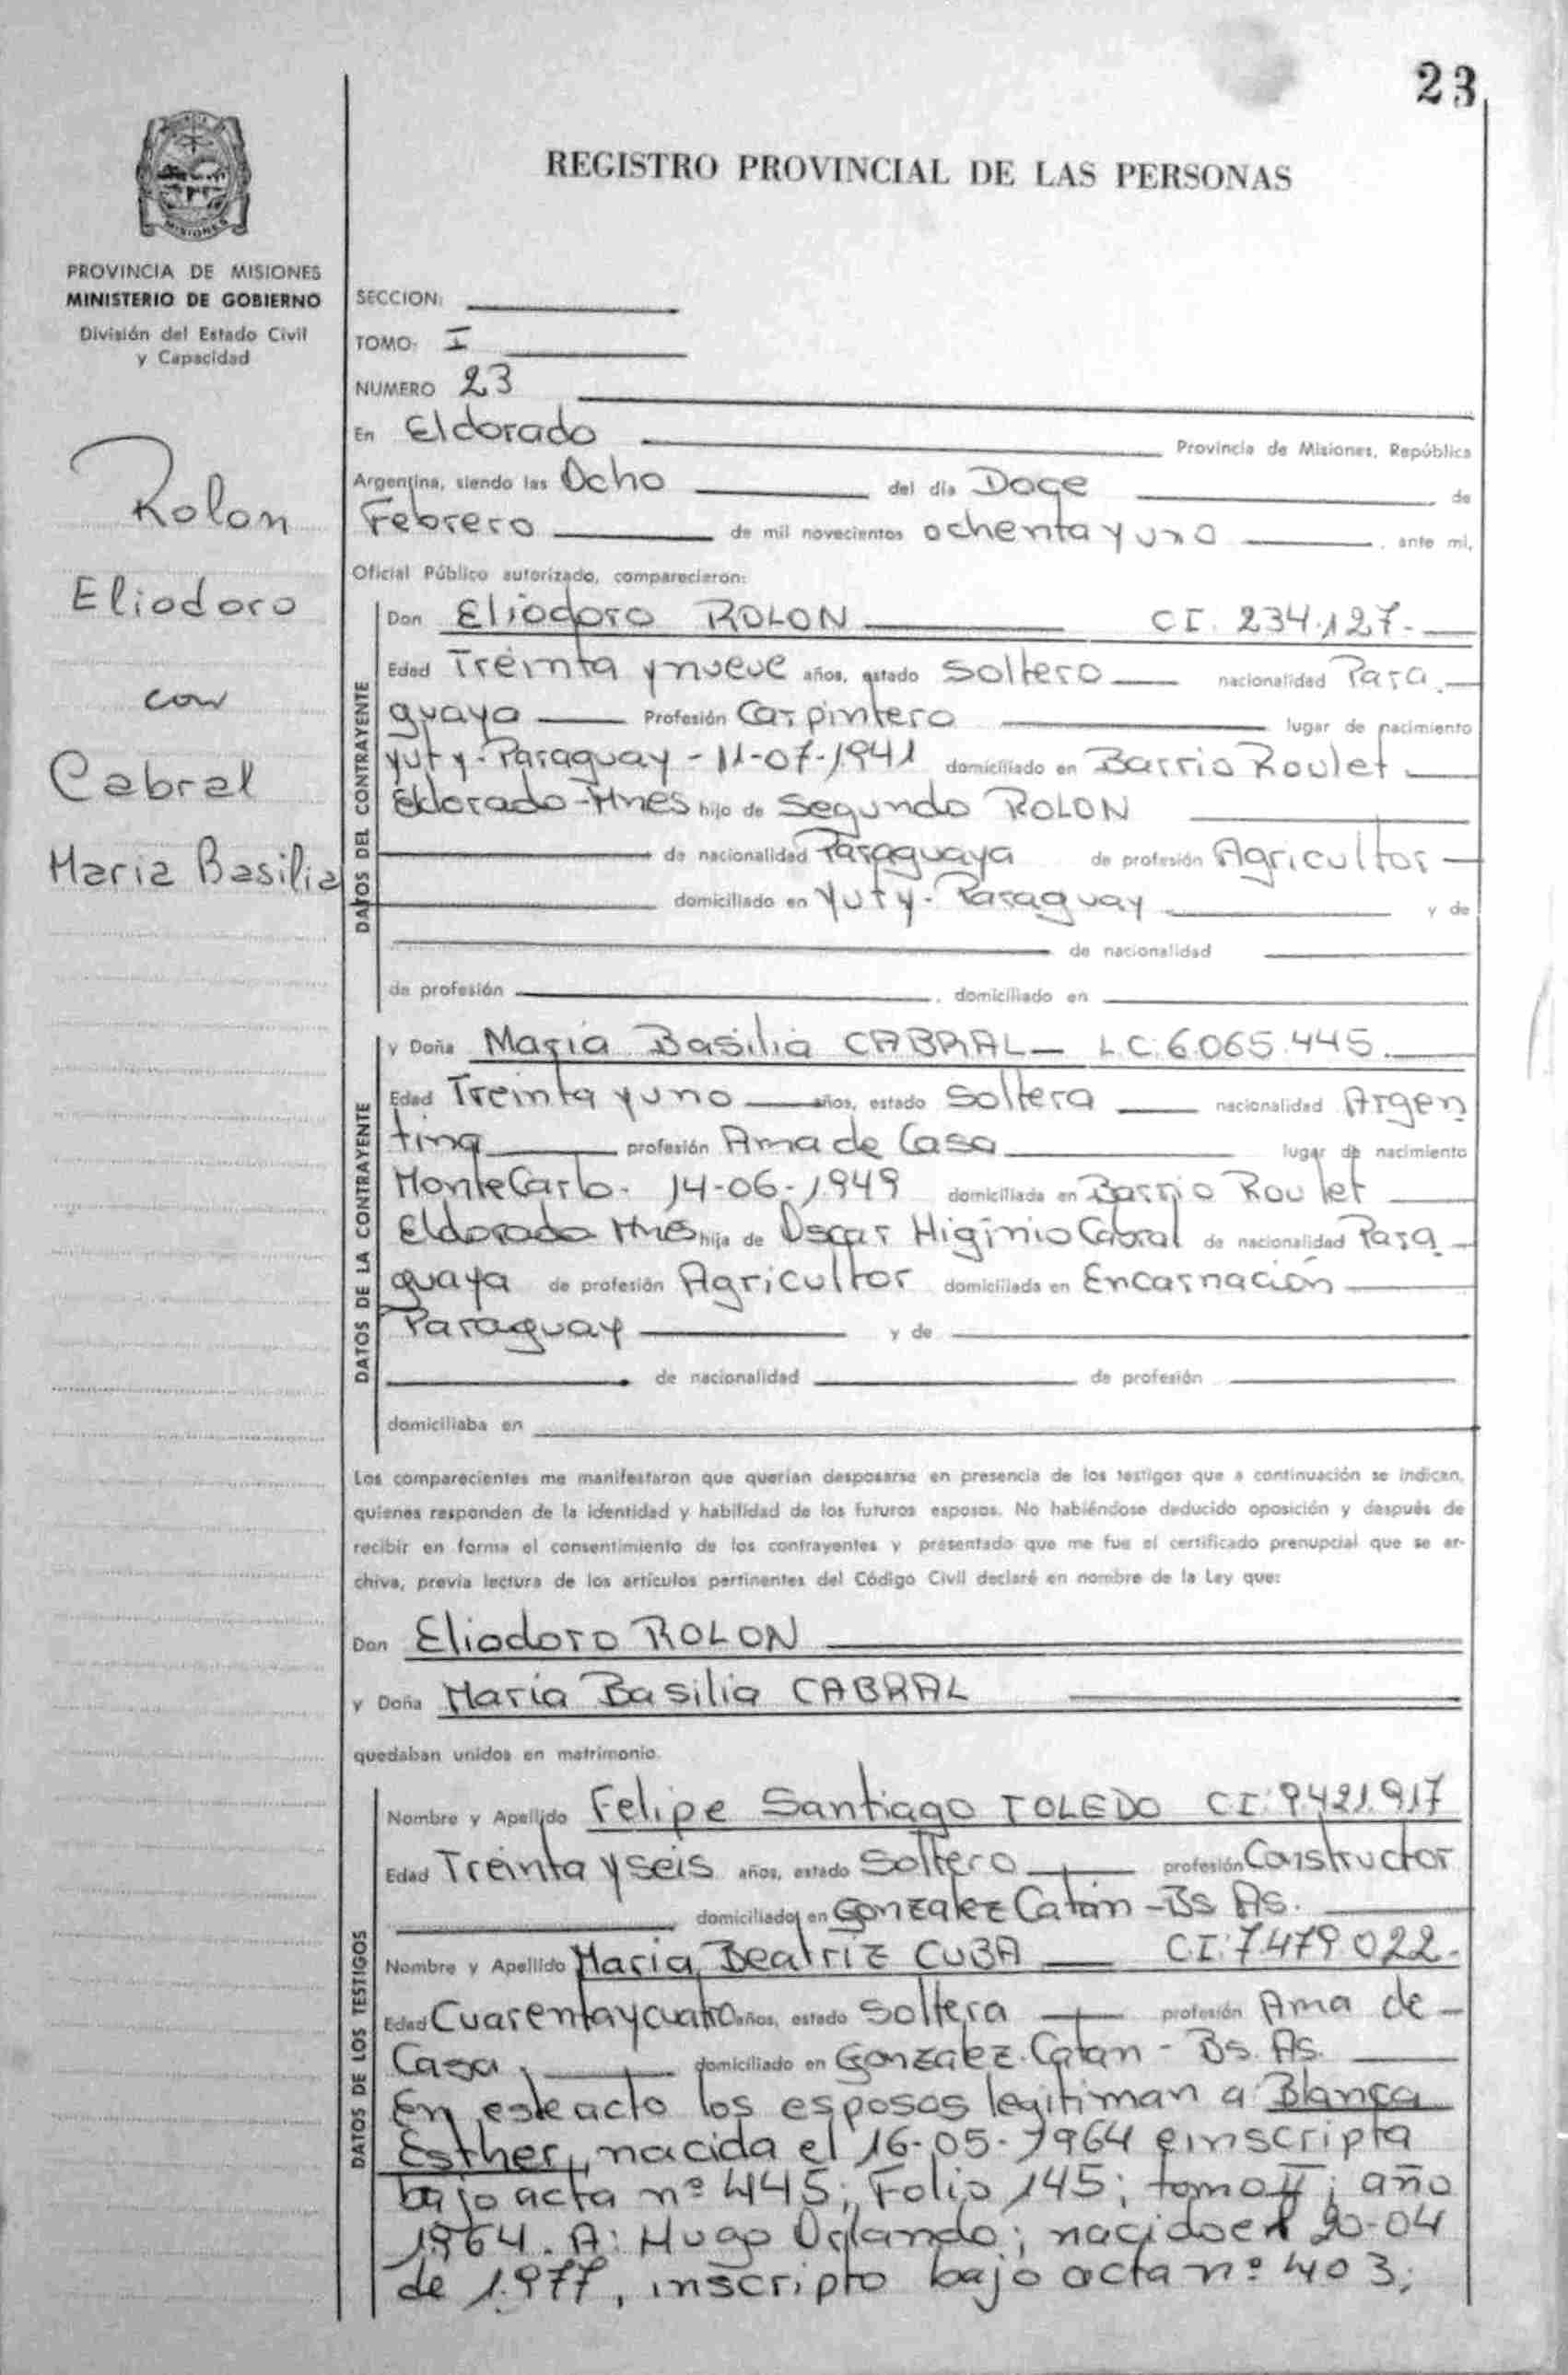 23
REGISTRO PROVINCIAL DE LAS PERSONAS
MISIONES
PROVINCIA DE MISIONES
MINISTERIO DE GOBIERNO
División del Estado Civil
y Capacidad
Rolon
Eliodoro
con
Cabral
Maria Basilia
SECCION:
TOMO: I
NUMERO 23
En Eldorado Provincia de Misiones, República
Argentina, siendo las Ocho del día Doce de
Febrero de mil novecientos ochenta y uno , ante mi,
Oficial Público autorizado, comparecieron:
DATOS DEL CONTRAYENTE
Don Eliodoro ROLON CI. 234.127.-
Edad Treinta y nueve años, estado Soltero nacionalidad Para
guaya Profesión Carpintero lugar de nacimiento
Yuty-Paraguay - 11-07-1941 domiciliado en Barrio Roulet
Eldorado-Mnes hijo de Segundo ROLON
de nacionalidad Paraguaya de profesión Agricultor
domiciliado en Yuty-Paraguay y de
de nacionalidad
de profesión , domiciliado en
DATOS DE LA CONTRAYENTE
y Doña Maria Basilia CABRAL L.C. 6.065.445.
Edad Treinta y uno años, estado Soltera nacionalidad Argen
tina profesión Ama de Casa lugar de nacimiento
MonteCarlo- 14-06-1949 domiciliada en Barrio Roulet
Eldorado Mnes hija de Oscar Higinio Cabral de nacionalidad Para
guaya de profesión Agricultor domiciliada en Encarnación
Paraguay y de
de nacionalidad de profesión
domiciliaba en
Los comparecientes me manifestaron que querían desposarse en presencia de los testigos que a continuación se indican,
quienes responden de la identidad y habilidad de los futuros esposos. No habiéndose deducido oposición y después de
recibir en forma el consentimiento de los contrayentes y presentado que me fue el certificado prenupcial que se ar-
chiva, previa lectura de los artículos pertinentes del Código Civil declaré en nombre de la Ley que:
Don Eliodoro ROLON
y Doña Maria Basilia CABRAL
quedaban unidos en matrimonio.
DATOS DE LOS TESTIGOS
Nombre y Apellido Felipe Santiago TOLEDO CI: 9.421.917
Edad Treinta y seis años, estado Soltero profesión Constructor
domiciliado en Gonzalez Catan - Bs As.
Nombre y Apellido Maria Beatriz CUBA C.I: 7.479.022.
Edad Cuarenta y cuatro años, estado Soltera profesión Ama de
Casa domiciliado en Gonzalez Catan - Bs. As.
En este acto los esposos legitiman a Blanca
Esther, nacida el 16-05-1964 e inscripta
bajo acta nº 445; Folio 145; tomo II; año
1964. A: Hugo Orlando; nacido el 20-04
de 1.977, inscripto bajo acta nº 403;